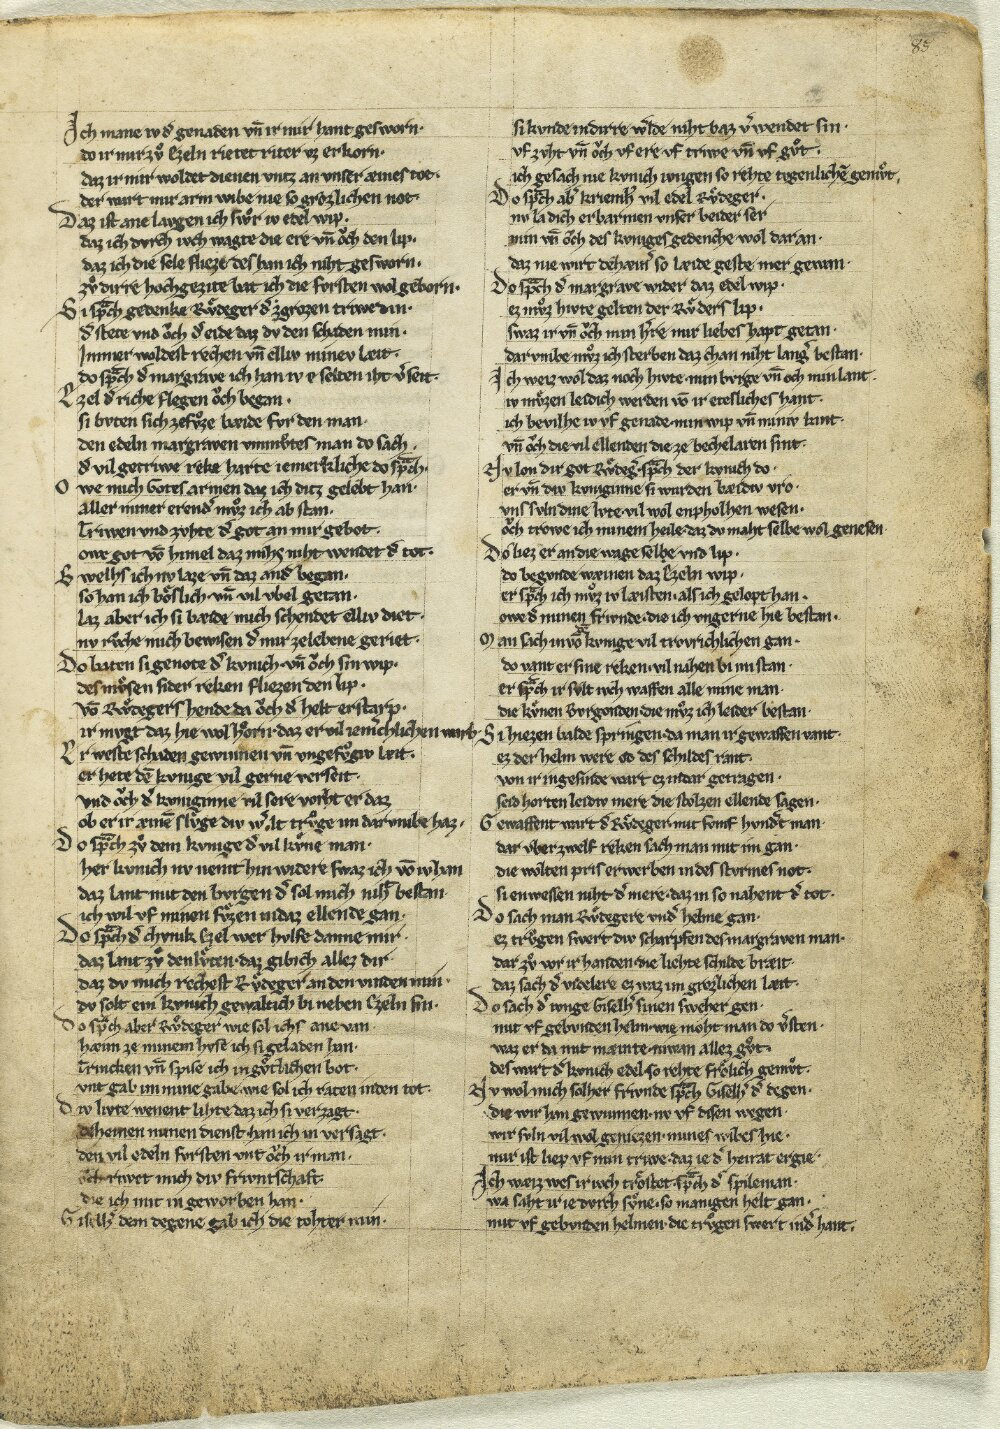 85
Ich mane iv d᷑ genaden vn̄ ir mir hant gesworn·
do ir mir zvͦ Ezeln rietet riter vz erkorn·
daz ir mir woldet dienen vntz an vnser æines tot·
der wart mir arm wibe nie so grozlichen not·
Daz ist ane lavgen ich swͦr iv edel wip·
daz ich dvrch ivch wagte die ere vn̄ oͮch den lip·
daz ich die sele flieze des han ich niht gesworn·
zvͦ dirre hochgezite bat ich die fvrsten wol geborn·
Si sp͛ch gedenke Rvͦdeger d᷑ grozen triwe din·
d᷑ stete vnd oͮch d᷑ eide daz dv den schaden min·
Immer woldest rechen vn̄ elliv minev læit·
do sp͛ch d᷑ margrave ich han iv e selten iht v᷑seit·
Ezel d᷑ riche flegen oͮch began·
si bvten sich ze fvͦze bæide fvr den man·
den edeln margraven vnmvͦtes man do sach·
d᷑ vil getriwe reke harte iemerkliche do sp͛ch·
O we mich Gotes armen daz ich ditz gelebt han·
aller miner eren d᷑ mvͦz ich ab stan·
triwen vnd zvhte d᷑ got an mir gebot·
owe got vō himel daz mihs niht wendet d᷑ tot·
Swelhs ich nv laze vn̄ daz and᷑ began·
so han ich boͤslich vn̄ vil vbel getan·
laz aber ich si bæide mich schendet elliv diet·
nv rvͦche mich bewisen d᷑ mir ze lebene geriet·
Do baten si genote d᷑ kvnich vn̄ oͮch sin wip·
des mvͦsen sider reken fliezen den lip·
vō Rvͦdegers hende da oͮch d᷑ helt erstarp·
ir mvgt daz hie wol hoͤrn daz er vil iem͛chlichen warb·
Er weste schaden gewinnen vn̄ vngefvͦgiv læit·
er hete dē kvnige vil gerne verseit·
vnd oͮch d᷑ kvniginne vil sere vorht er daz
ob er ir æinē slvͦge div w᷑lt trvͦge im dar vmbe haz·
Do sp͛ch zvͦ dem kvnige d᷑ vil kvͦne man·
her kvnich nv nemt hin widere swaz ich vō iv han
daz lant mit den bvrgen d᷑ sol mich niht bestan·
ich wil vf minen fvͦzen in daz ellende gan·
Do sp͛ch d᷑ chvnik Ezel wer hvlfe danne mir·
daz lant zvͦ den lvͤten daz gib ich allez dir·
daz dv mich rechest Rvͦdeger an den vinden min·
dv solt ein kvnich gewaltich bi neben Ezeln sin·
Do sp͛ch aber Rvͦdeger wie sol ichs ane van·
hæim ze minem hvse ich si geladen han·
trincken vn̄ spise ich in gvͦtlichen bot·
vnt gab im mine gabe wie sol ich raten in den tot·
Div livte wenent lihte daz ich si verzagt·
deheinen minen dienst han ich in versagt·
den vil edeln fvrsten vnt oͮch ir man·
oͮch riwet mich div frivntschaft
die ich mit in geworben han·
Giselh᷑ dem degene gab ich die tohter min·
si kvnde in dirre w᷑lde niht baz v᷑wendet sin·
vf zvht vn̄ oͮch vf ere vf triwe vn̄ vf gvͦt·
ich gesach nie kvnich ivngen so rehte tvgenliche gemvͦt·
Do sp͛ch ab᷑ kriemh᷑ vil edel Rvͦdeger·
nv la dich erbarmen vnser beider ser
min vn̄ oͮch des kvniges gedenche wol dar an·
daz nie wirt dehæin᷑ so læide geste mer gewan·
Do sp͛ch d᷑ margrave wider daz edel wip·
ez mvͦz hivte gelten der Rvͦders lip·
swaz ir vn̄ oͮch min h᷑re mir liebes hapt getan·
dar vmbe mvͦz ich sterben daz chan niht lang᷑ bestan·
Ich weiz wol daz noch hivte min bvrge vn̄ och min lant·
iv mvͦzen ledich werden vō ir etesliches hant·
ich bevilhe iv vf genade min wip vn̄ miniv kint·
vn̄ oͮch die vil ellenden die ze bechelaren sint·
Nv lon dir got Rvͦdeg᷑ sp͛ch der kvnich do·
er vn̄ div kvniginne si wurden bæidiv vro·
vns svln dine lvte vil wol enpholhen wesen·
oͮch trowe ich minem heile daz dv maht selbe wol genesen·
Do liez er an die wage selbe vnd lip·
do begvnde wæinen daz Ezeln wip·
er sp͛ch ich mvͦz iv læisten als ich gelopt han·
owe d᷑ minen frivnde die ich vngerne hie bestan·
Man sach in vō kvnige vil trovrichlichen gan·
do vant er sine reken vil nahen bi im stan·
er sp͛ch ir svlt ivch waffen alle mine man·
die kvͦnen Bvrgonden die mvͦz ich leider bestan·
Si hiezen balde springen da man ir gewaffen vant·
ez der helm were od des schildes rant·
von ir ingesinde wart ez in dar getragen·
seid horten leidiv mere die stolzen ellende sagen·
Gewaffent wart d᷑ Rvͦdeger mit fvnf hvnd᷑t man·
dar vber zwelf reken sach man mit im gan·
die wolten pris erwerben in des stvrmes not·
si enwessen niht d᷑ mere daz in so nahent d᷑ tot·
Do sach man Rvͦdegere vnd᷑ helme gan·
ez trvͦgen swert div scharpfen des margraven man·
dar zvͦ vor ir handen die liehte schilde bræit·
daz sach d᷑ videlere ez waz im grozlichen læit·
Do sach d᷑ ivnge Giselh᷑ sinen sweher gen·
mit vf gebvnden helm wie moht man do v᷑sten·
waz er da mit mæinte niwan allez gvͦt·
des wart d᷑ kvnich edel so rehte froͤlich gemvͦt·
Nv wol mich solher frivnde sp͛ch Giselh᷑ d᷑ degen·
die wir han gewunnen nv vf disen wegen·
wir svln vil wol geniezen mines wibes hie·
mir ist liep vf min triwe daz ie d᷑ heirat ergie·
Ich wæiz wes ir ivch troͤstet sp͛ch d᷑ spileman·
wa saht ir ie dvrch svͦne so manigen helt gan·
mit vf gebvnden helmen die trvͦgen swert in d᷑ hant·